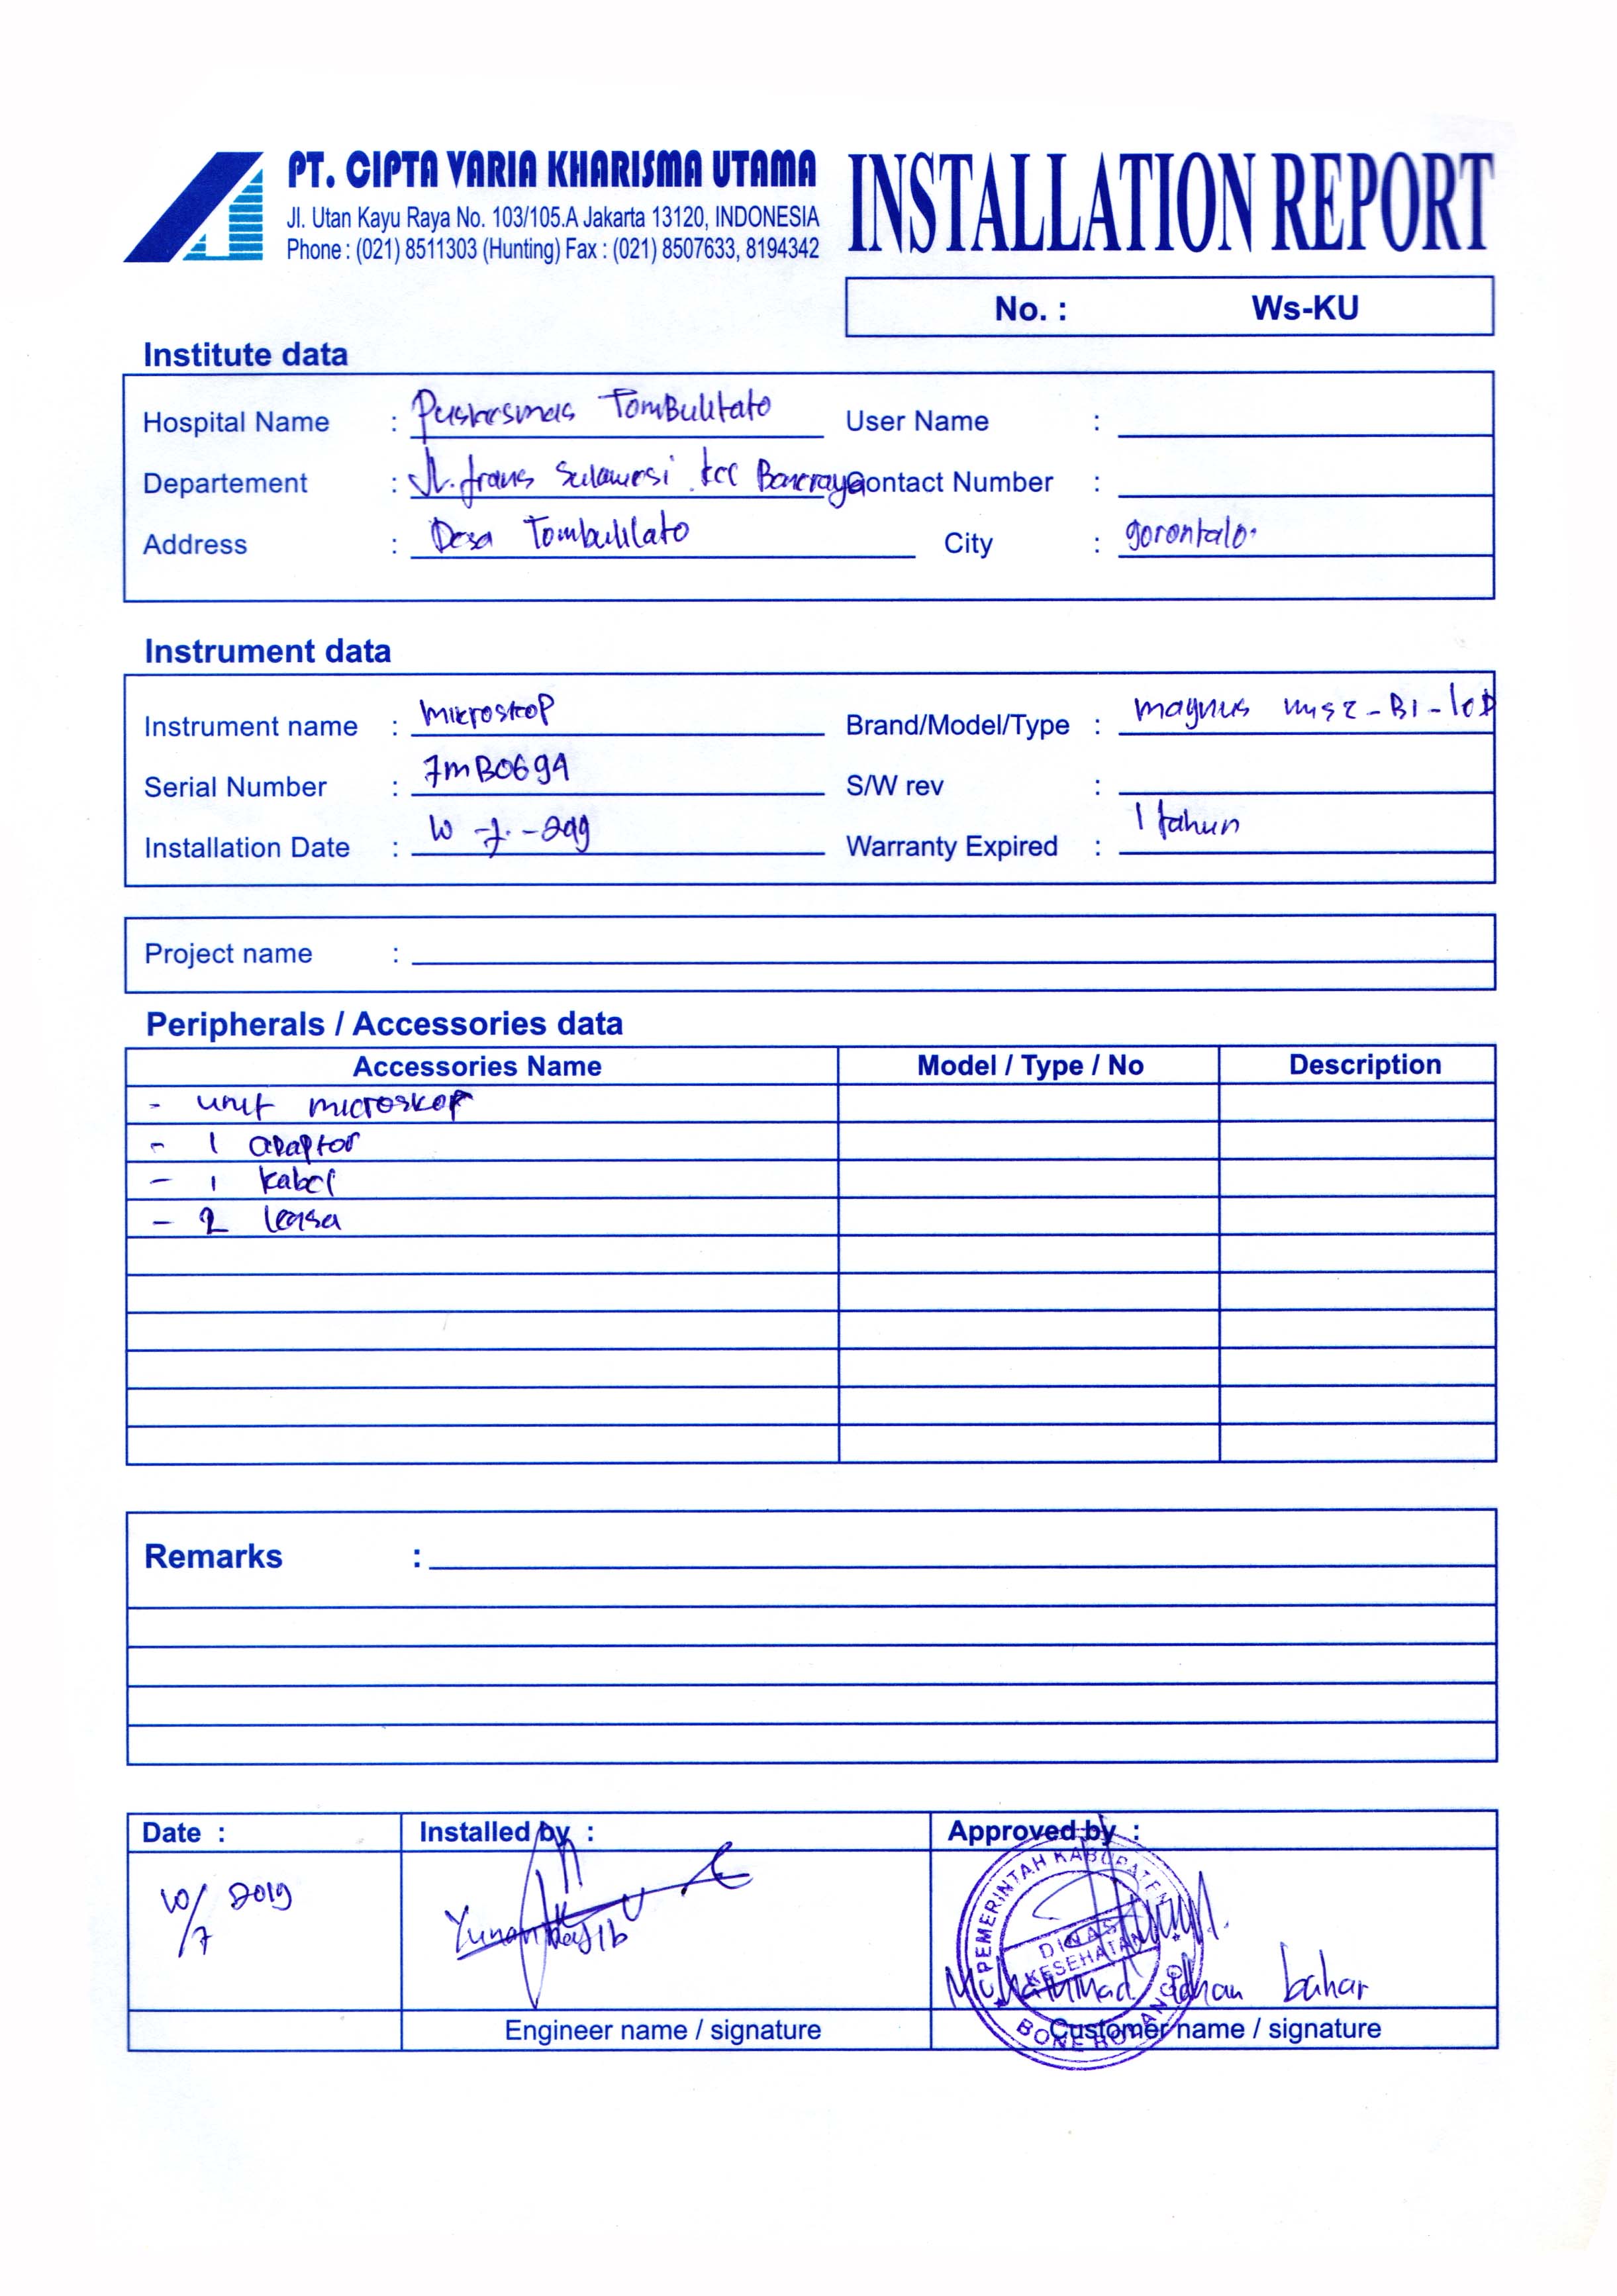 PT. CIPTA VARIA KHARISMA UTAMA
Jl. Utan Kayu Raya No. 103/105.A Jakarta 13120, INDONESIA
Phone : (021) 8511303 (Hunting) Fax : (021) 8507633, 8194342
INSTALLATION REPORT
No. : Ws-KU
Institute data
Hospital Name : Puskesmas Tombulilato User Name :
Departement : Jl. trans Sulawesi kec Boneraya Contact Number :
Address : Desa Tombulilato City : gorontalo
Instrument data
Instrument name : mikroskop Brand/Model/Type : magnus
Serial Number : 7MB0694 S/W rev :
Installation Date : 10 - 7 - Warranty Expired : 1 tahun
Project name :
Peripherals / Accessories data
Accessories Name Model / Type / No Description
- unit microskop
- 1 adaptor
- 1 kabel
- 2 lensa
Remarks :
Date : Installed by : Approved by :
10/7 2019
PEMERINTAH KABUPATEN
DINAS
KESEHATAN
BONE BOLANGO
bahar
Engineer name / signature Customer name / signature